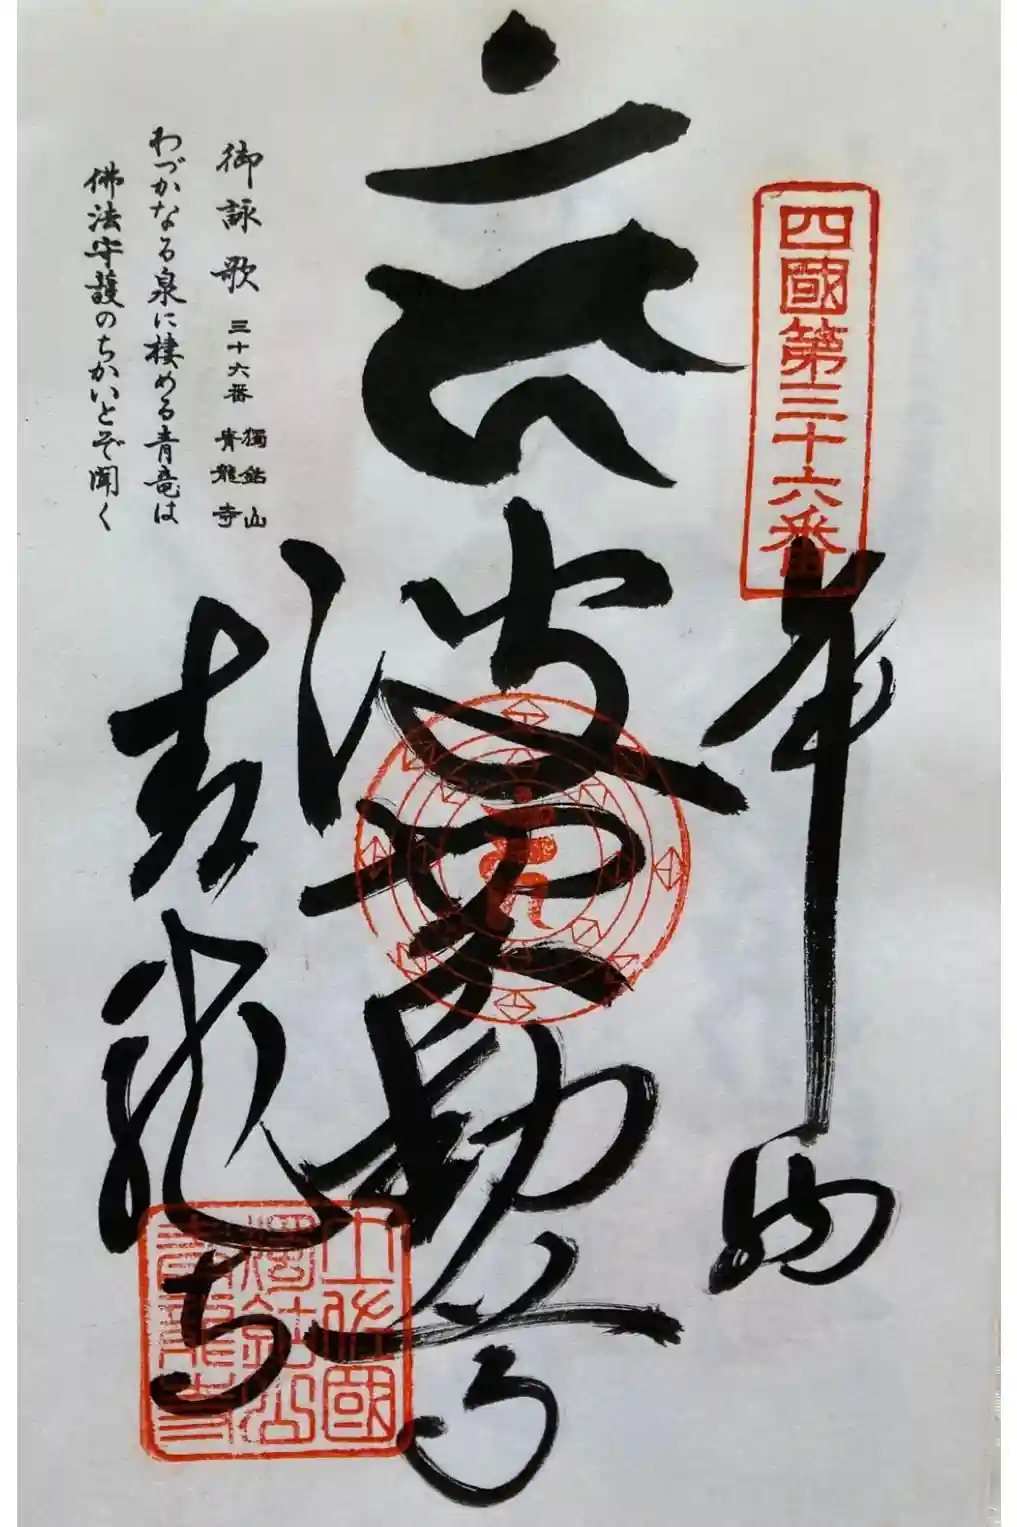 四國第三十六番
奉納
波切不動尊
青龍寺
御詠歌 三十六番 獨鈷山
青龍寺
わづかなる泉に棲める青竜は
佛法守護のちかいとぞ聞く
土佐國
獨鈷山
青龍寺